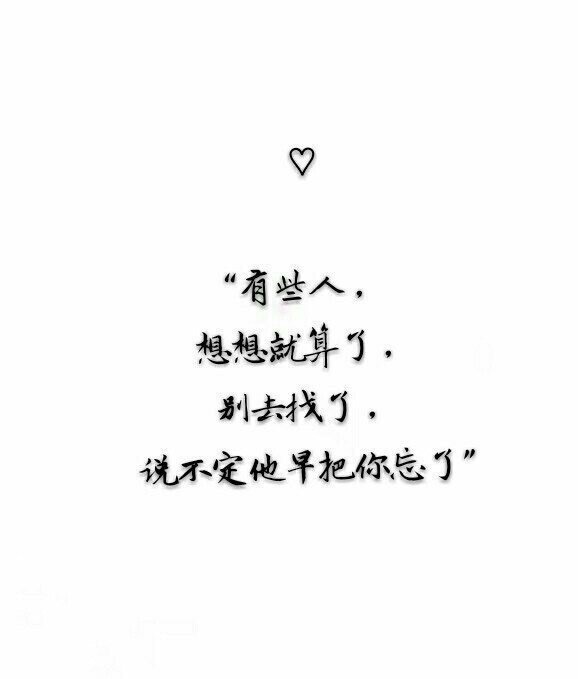 ♡
“有些人，
想想就算了，
别去找了，
说不定他早把你忘了”